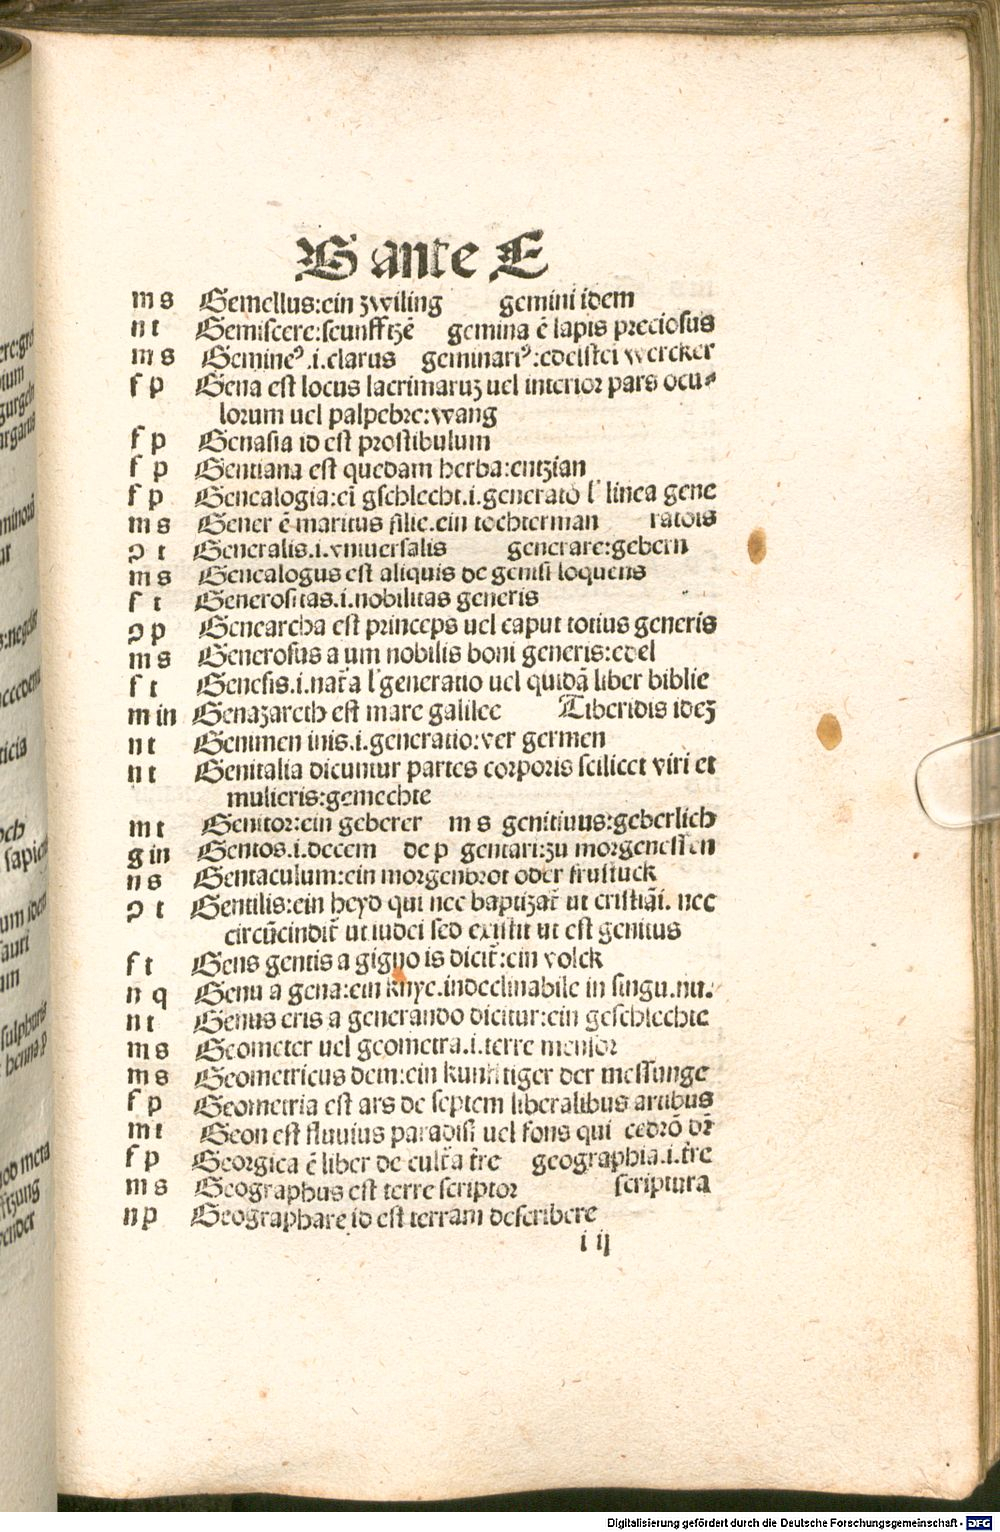 G ante E
m s Gemellus:ein zwiling gemini idem
n t Gemiscere:seunfftzē gemina ē lapis preciosus
m s Gemineꝰ.i.clarus geminariꝰ:edelstei wercker
f p Gena est locus lacrimaruꝫ uel interior pars ocu⸗
lorum uel palpebre:wang
f p Genasia id est prostibulum
f p Gentiana est quedam herba:entzian
f p Genealogia:eī gschlecht.i.generatō l' linea gene
m s Gener ē maritus filie.ein tochterman ratois
ↄ t Generalis.i.vniuersalis generare:gebern
m s Genealogus est aliquis de genesi loquens
f t Generositas.i.nobilitas generis
ↄ p Genearcha est princeps uel caput totius generis
m s Generosus a um nobilis boni generis:edel
f t Genesis.i.nat̄a l' generatio uel quidā liber biblie
m in Genazareth est mare galilee Tiberidis ideꝫ
n t Genimen inis.i.generatio:ver germen
n t Genitalia dicuntur partes corporis scilicet viri et
mulieris:gemechte
m t Genitor:ein geberer m s genitiuus:geberlich
g in Gentos.i.decem de p gentari:zu morgenessen
n s Gentaculum:ein morgenbrot oder frustuck
ↄ t Gentilis:ein heyd qui nec baptizat̄ ut cristiāi. nec
circūcindit̄ ut iudei sed existit ut est genitus
f t Gens gentis a gigno is dicit̄:ein volck
n q Genu a gena:ein knye.indeclinabile in singu.nu.
n t Genus eris a generando dicitur:ein geschlechte
m s Geometer uel geometra.i.terre mensor
m s Geometricus dem:ein kunstiger der messunge
f p Geometria est ars de septem liberalibus artibus
m t Geon est fluuius paradisi uel fons qui cedrō dr̄
f p Georgica ē liber de cult̄a t̄re geographia.i.t̄re
m s Geographus est terre scriptor scriptura
n p Geographare id est terram describere
i ij
Digitalisierung gefördert durch die Deutsche Forschungsgemeinschaft - DFG